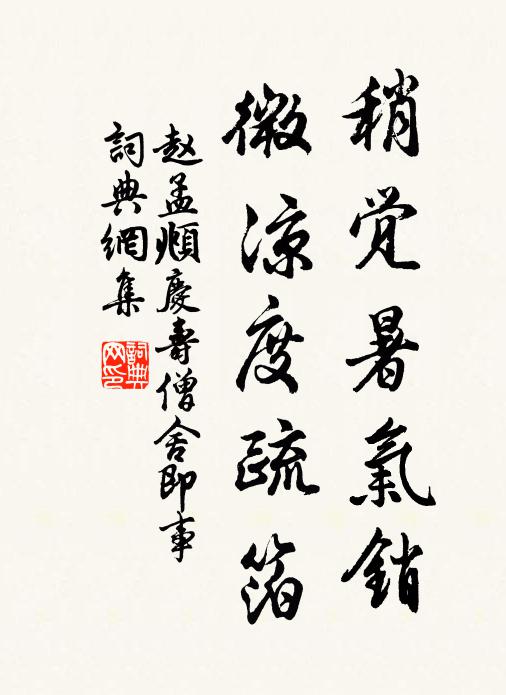 稍觉暑氣銷
微涼度疏箔
赵孟頫慶壽僧舍即事
詞典網集
詞典网印